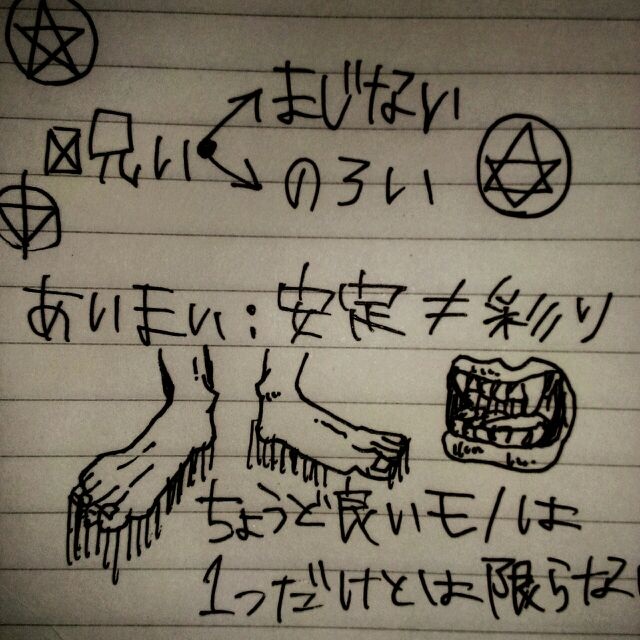 まじない
呪い
のろい
あいまい:安定≠彩り
ちょうど良いモノは
1つだけとは限らない